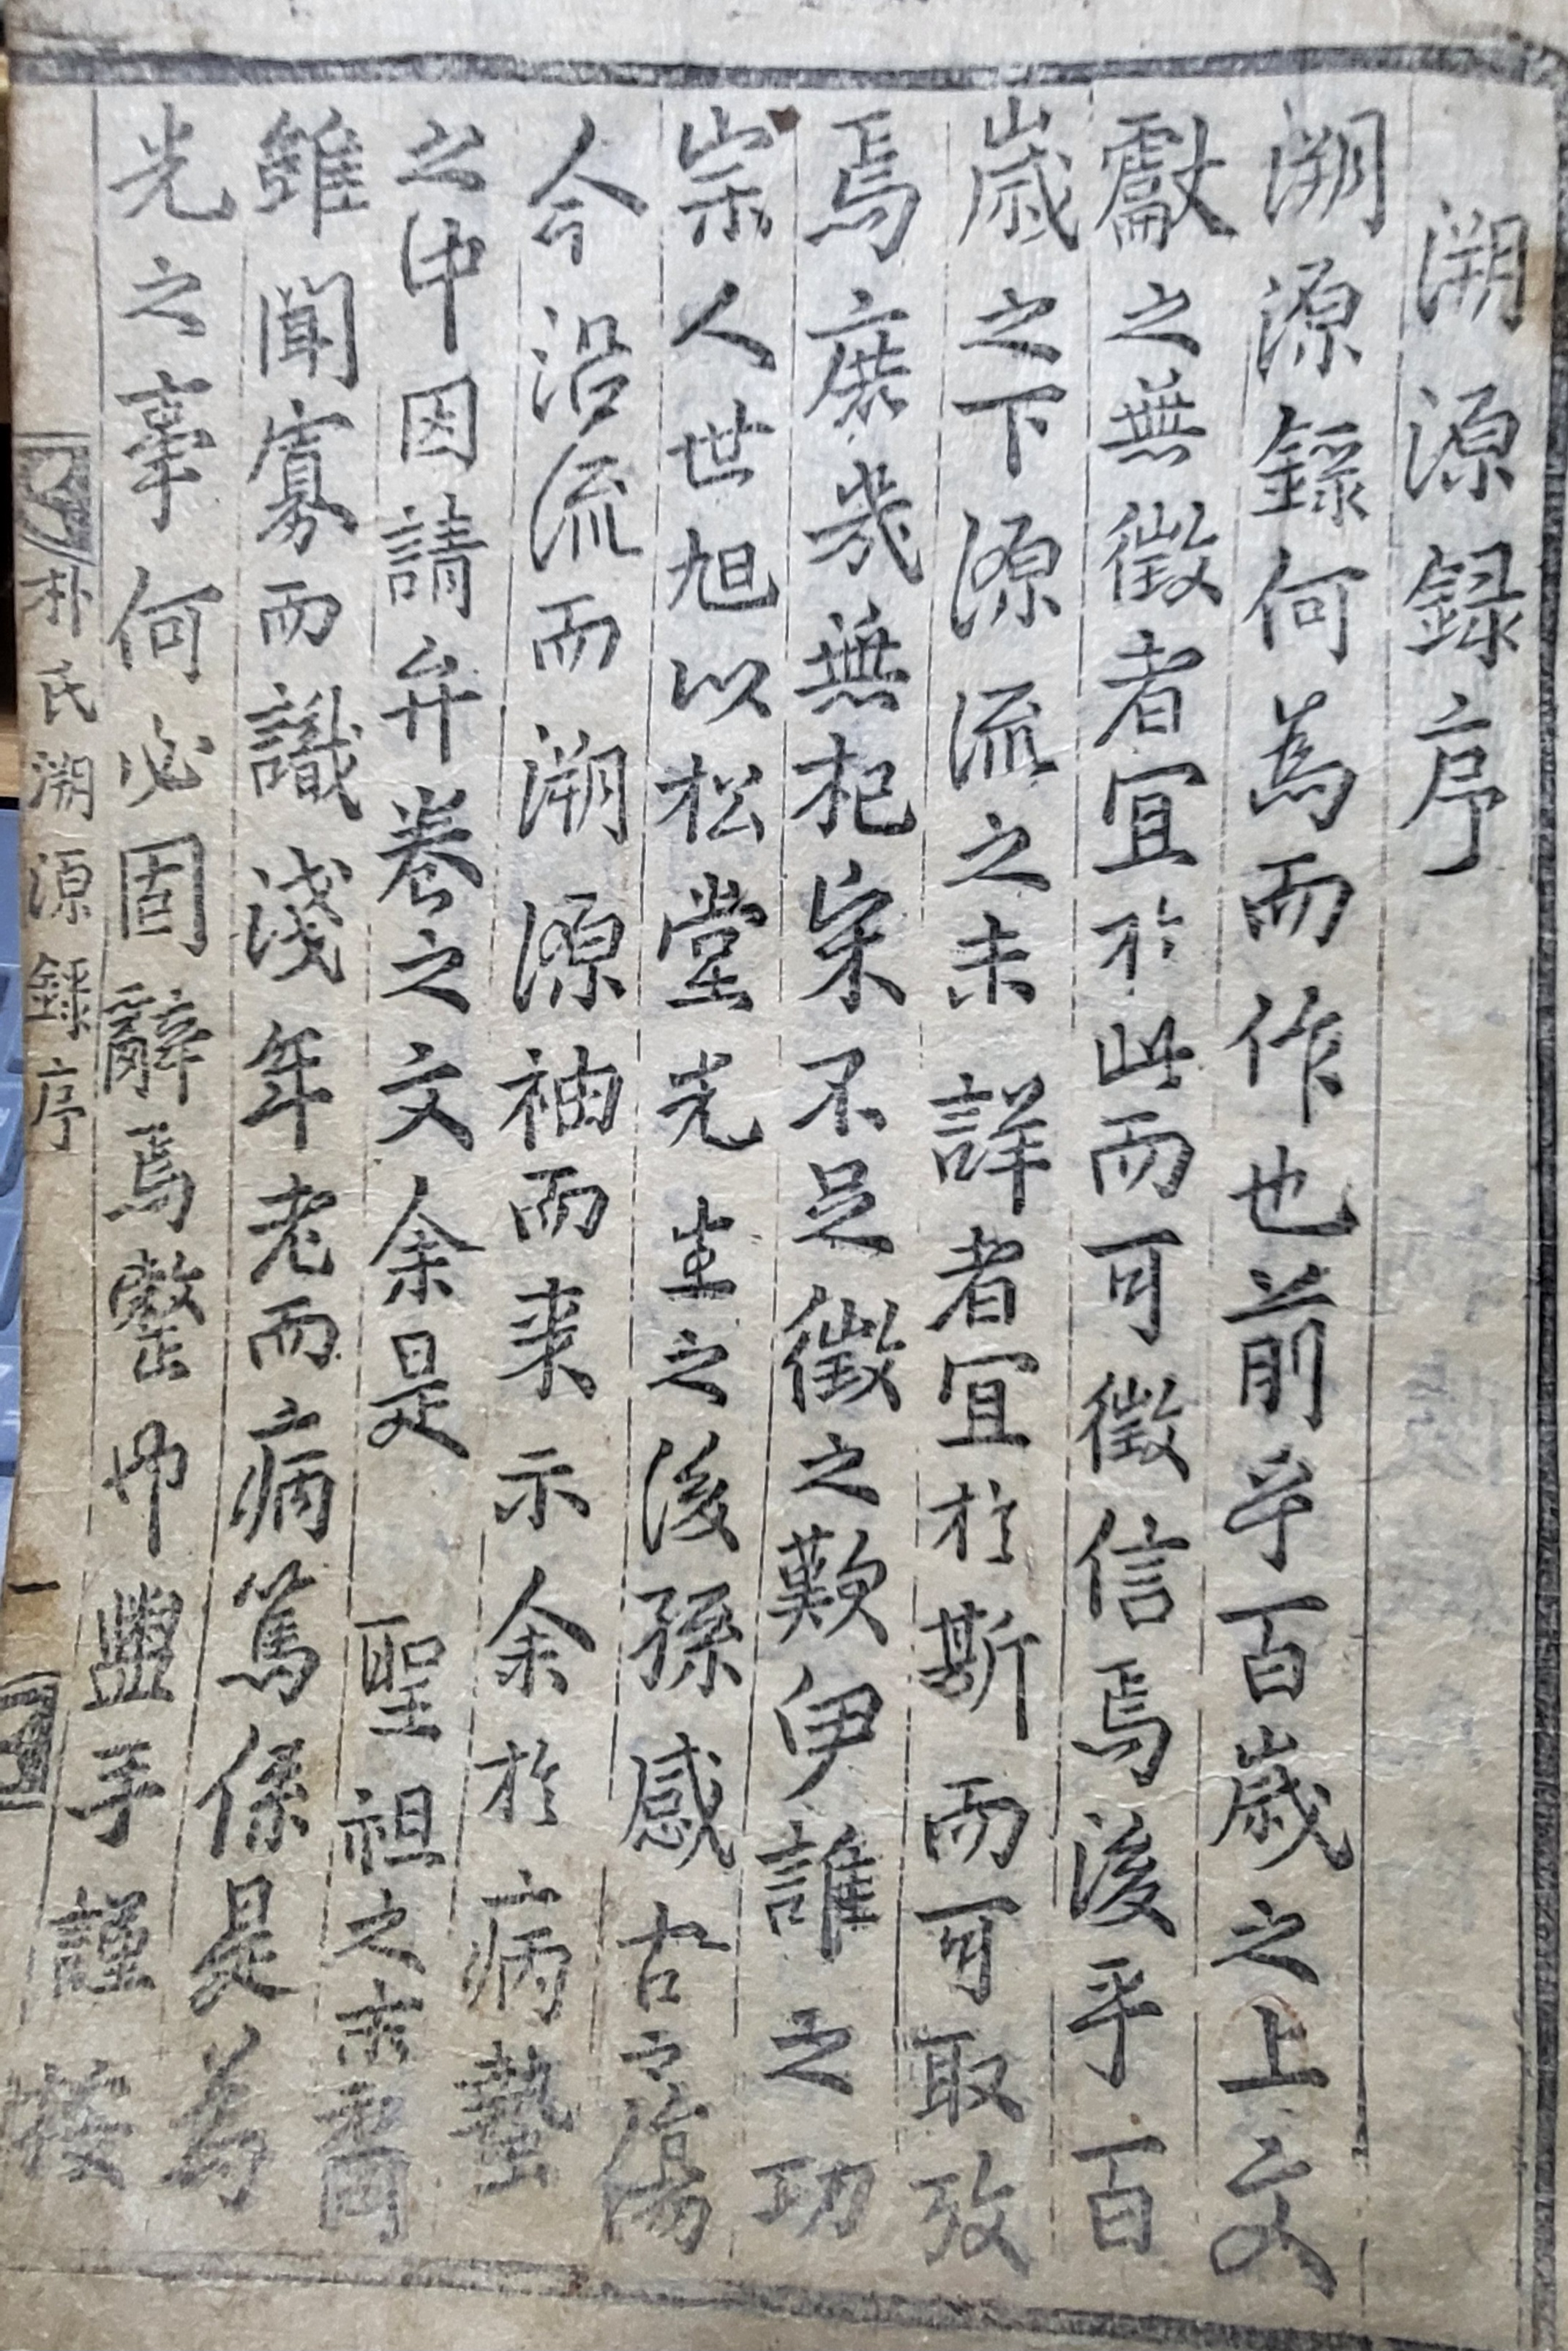 溯源録序
溯源錄何為而作也前乎百歲之上文
獻之無徵者宜於此而可徵信焉後乎百
歲之下源流之未詳者宜於斯而可取攷
焉庶幾無杞宋不足徵之歎伊誰之功
崇人世旭以松堂先生之後孫感古之傷
今沿流而溯源袖而来示余於病蟄
之中因請弁卷之文余是聖祖之
雖聞寡而識淺年老而病篤係是為
光之事何必固辭焉盥手謹
朴氏溯源錄序
一